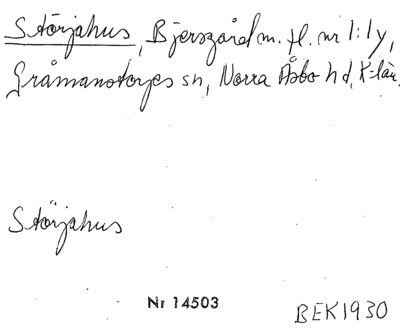 Störjahus, Bjersgård m. fl. nr 1:1y,
Gråmanstorps sn, Norra Åsbo hd, K-län.
Störjahus
Nr 14503
BEK1930